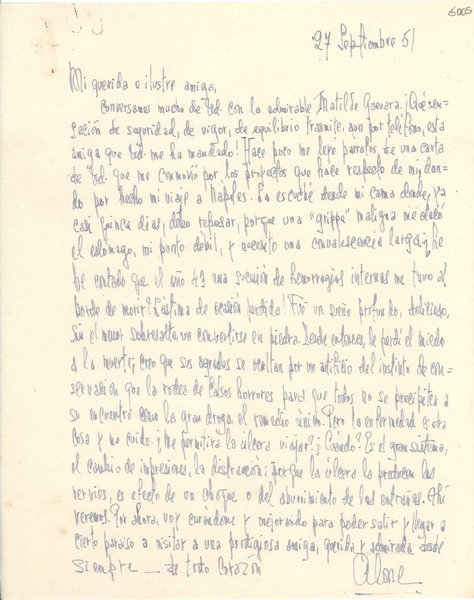 6005
27 Septiembre 51
Mi querida e ilustre amiga,
Conversamos mucho de Ud. con la admirable Matilde Guevara. ¡Qué sen-
sación de seguridad, de vigor, de equilibrio trasmite, aun por teléfono, esta
amiga que Ud. me ha mandado! Hace poco me leyó párrafos de una carta
de Ud. que me conmovió por los proyectos que hace respecto de mí, dan-
do por hecho mi viaje a Nápoles. La escuché desde mi cama donde, ya
casi quince días, debo reposar, porque una "grippe" maligna me atacó
el estómago, mi punto débil, y necesito una convalescencia larga. ¿Le
he contado que el año 43 una sucesión de hemorragias internas me tuvo al
borde de morir? ¡Lástima de ocasión perdida! Fué un sueño profundo, delicioso,
sin el menor sobresalto, un convertirse en piedra. Desde entonces, le perdí el miedo
a la muerte; creo que sus agrados se ocultan por un artificio del instinto de con-
servación que la rodea de falsos horrores para que todos no se precipiten a
su encuentro como la gran droga, el remedio único. Pero la enfermedad es otra
cosa y me cuido. ¿Me permitirá la úlcera viajar? ¿Cuándo? Es el gran sistema,
el cambio de impresiones, la distracción; porque la úlcera la producen los
nervios, es efecto de un choque o del aburrimiento de las entrañas. Ahí
veremos. Por ahora, voy curándome y mejorando para poder salir y llegar a
cierto paraíso a visitar a una prodigiosa amiga, querida y admirada desde
siempre — de todo corazón
Alone